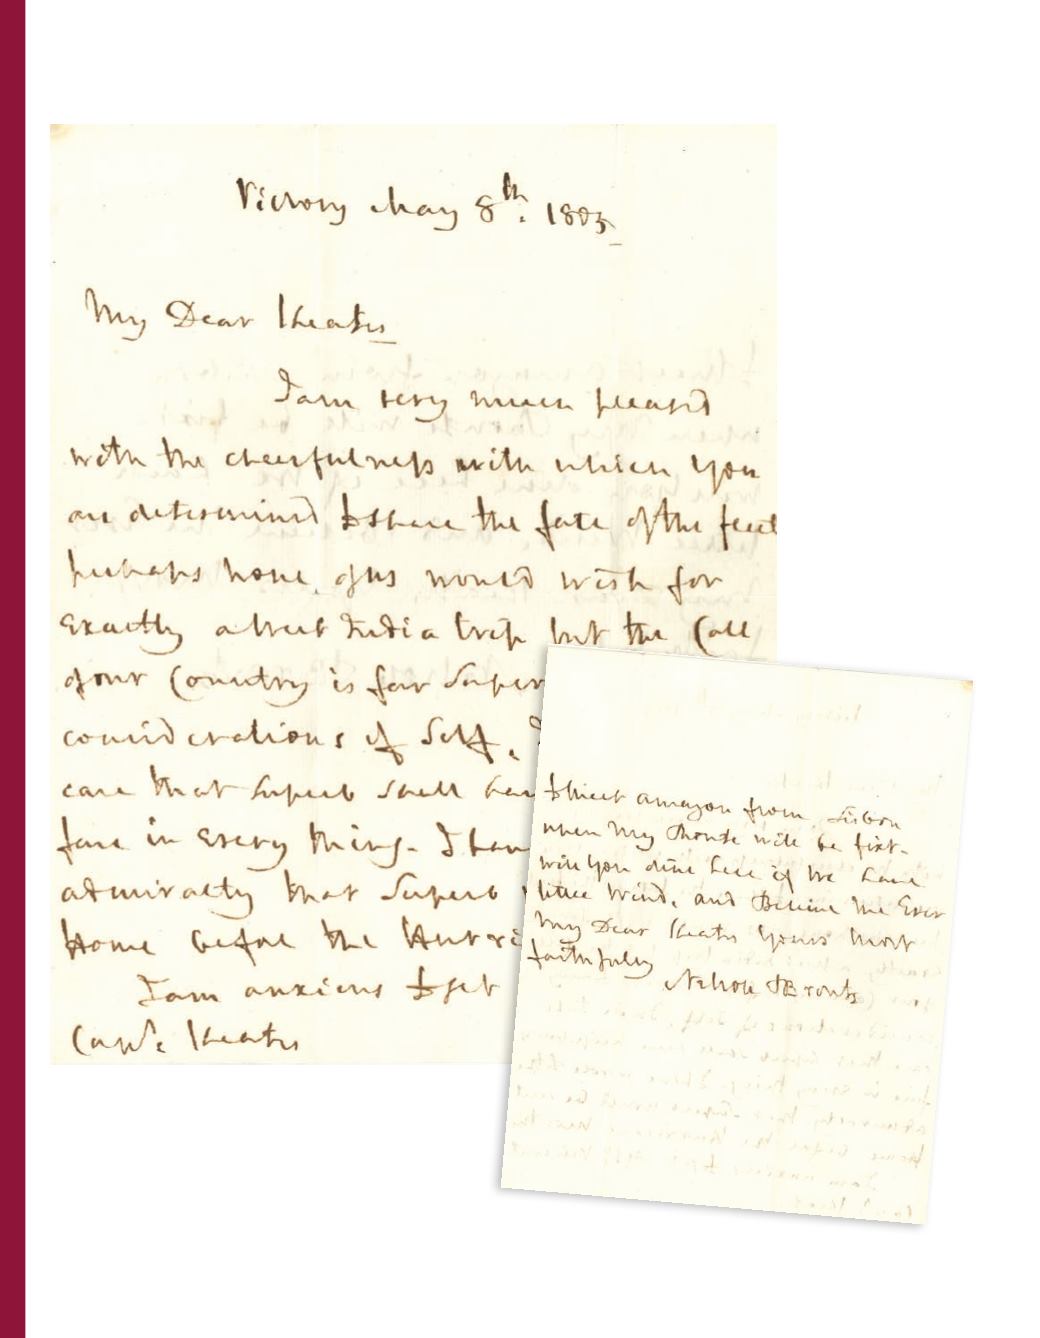 Victory May 8th. 1805
My Dear Keats
I am very much pleas'd
with the cheerfulness with which you
are determined to share the fate of the fleet
perhaps none of us would wish for
Exactly a West India trip but the Call
of our Country is far Super
considerations of Self,
care that Superb Shall have
fare in Every thing. I have
admiralty that Superb
home before the Hurri
I am anxious to get
Capt. Keats
to Meet amazon from Lisbon
when My Route will be fixt.
will you dine here if we have
little Wind, and Believe Me Ever
My Dear Keats Yours Most
faithfully
Nelson & Bronte